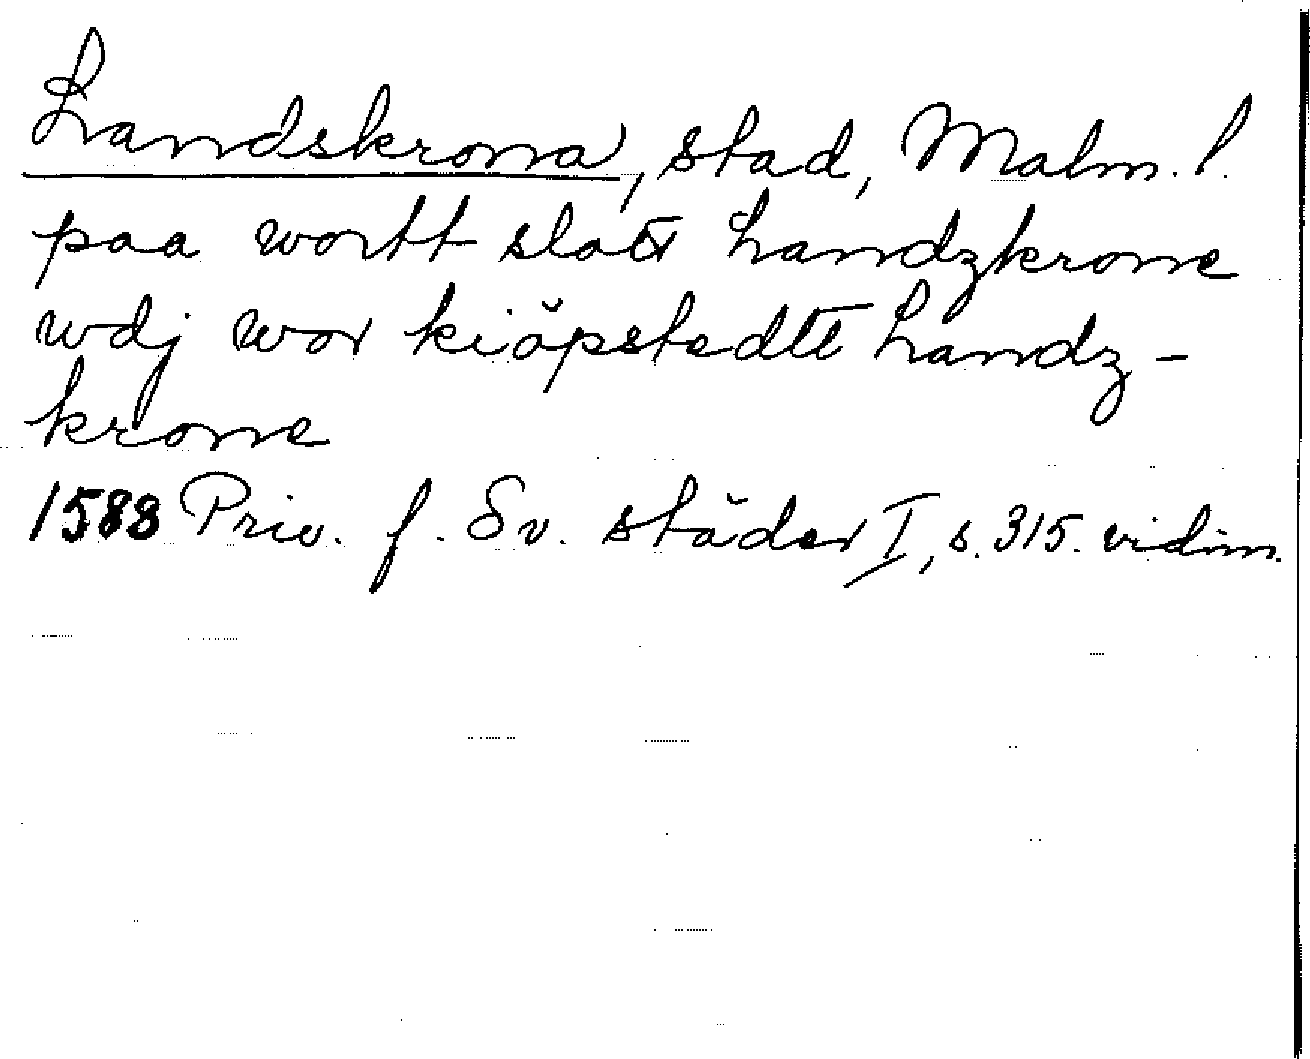 Landskrona, stad, Malm. l.
paa wortt slott Landzkrone
wdj wor kiöpstedtt Landz-
krone
1588 Priv. f. Sv. städer I, s. 315. vidim.